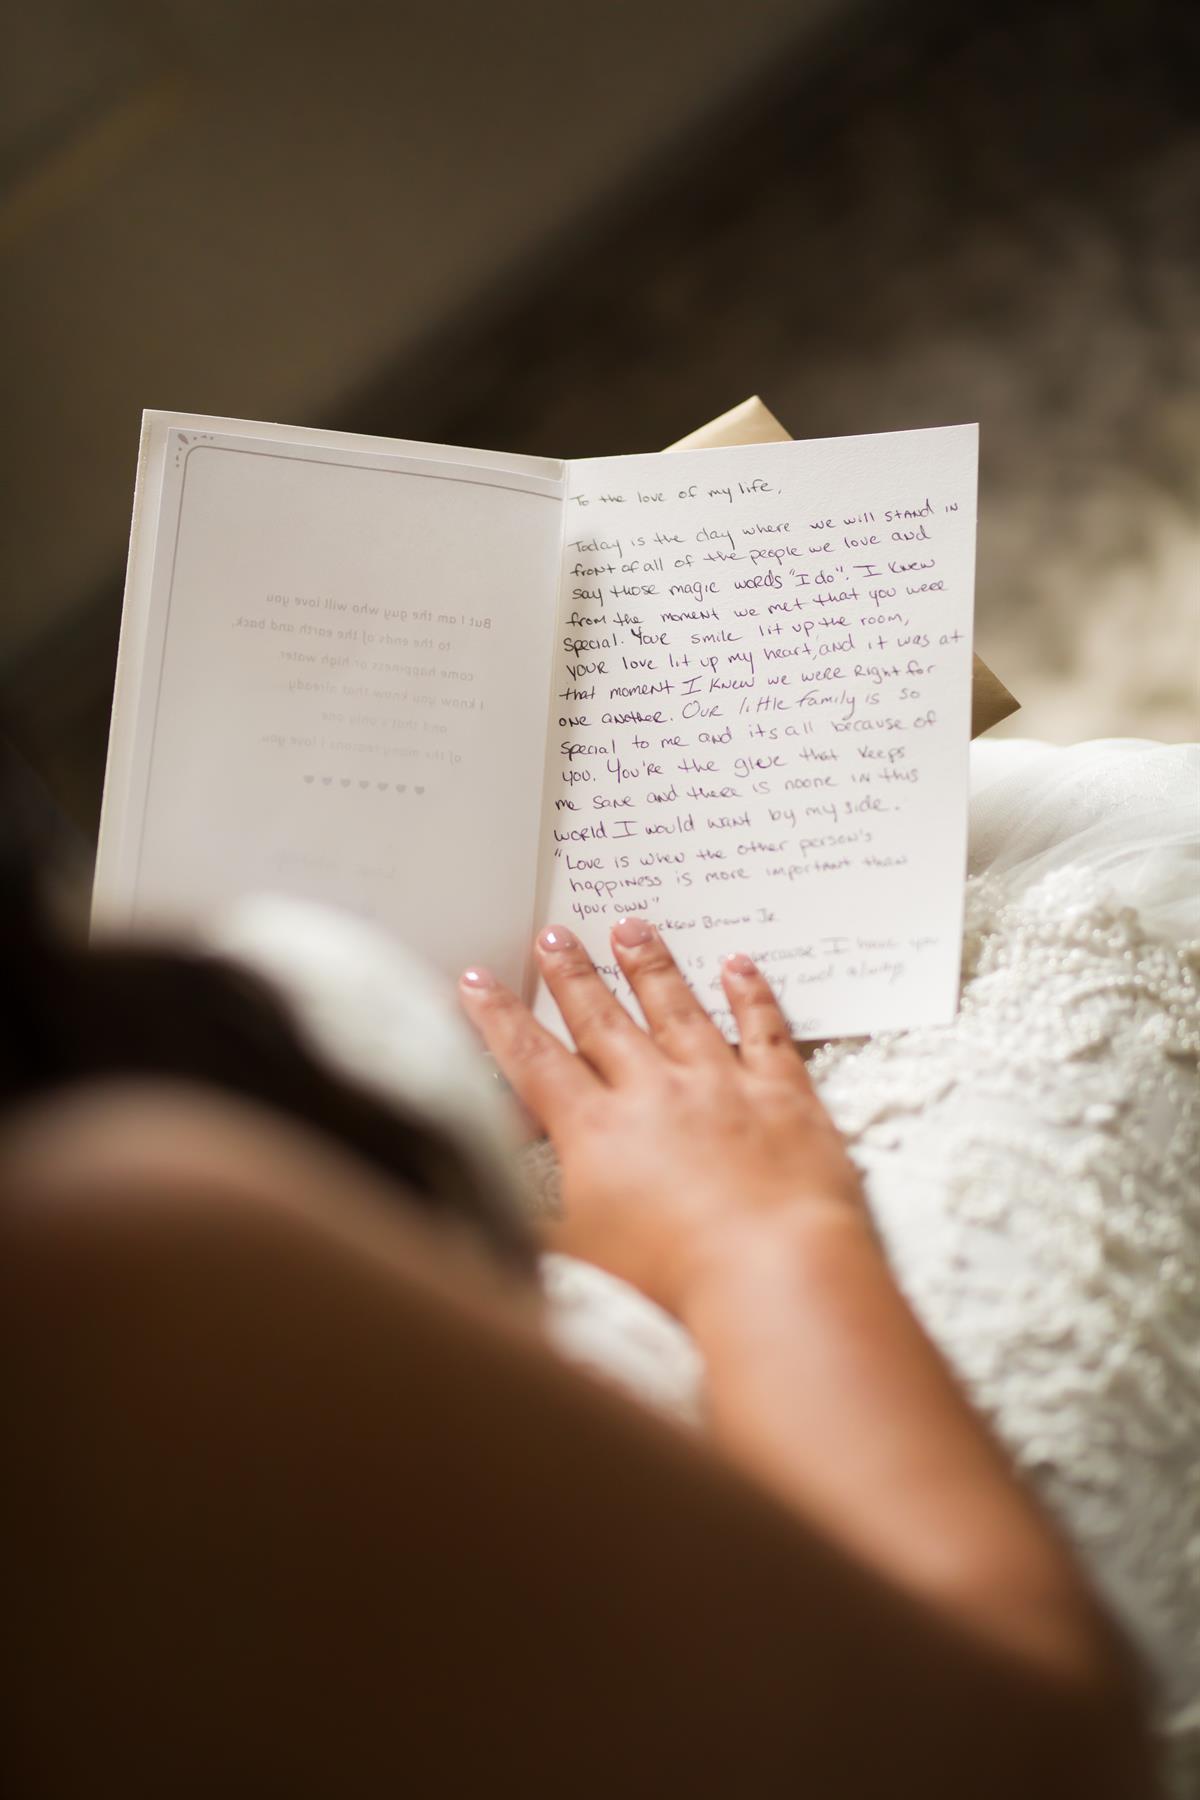 But I am the guy who will love you
to the ends of the earth and back,
come happiness or high water.
I know you know that already
and that's only one
of the many reasons I love you.
To the love of my life,
Today is the day where we will stand in
front of all of the people we love and
say those magic words "I do". I knew
from the moment we met that you were
special. Your smile lit up the room,
your love lit up my heart, and it was at
that moment I knew we were right for
one another. Our little family is so
special to me and its all because of
you. You're the glue that keeps
me sane and there is noone in this
world I would want by my side.
"Love is when the other person's
happiness is more important than
your own"
Brown Jr.
is because I have you
and always